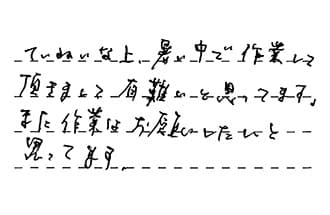 ていねいな上、暑い中で作業して
頂きまして有難いと思ってます。
また作業はお願いしたいと
思ってます。